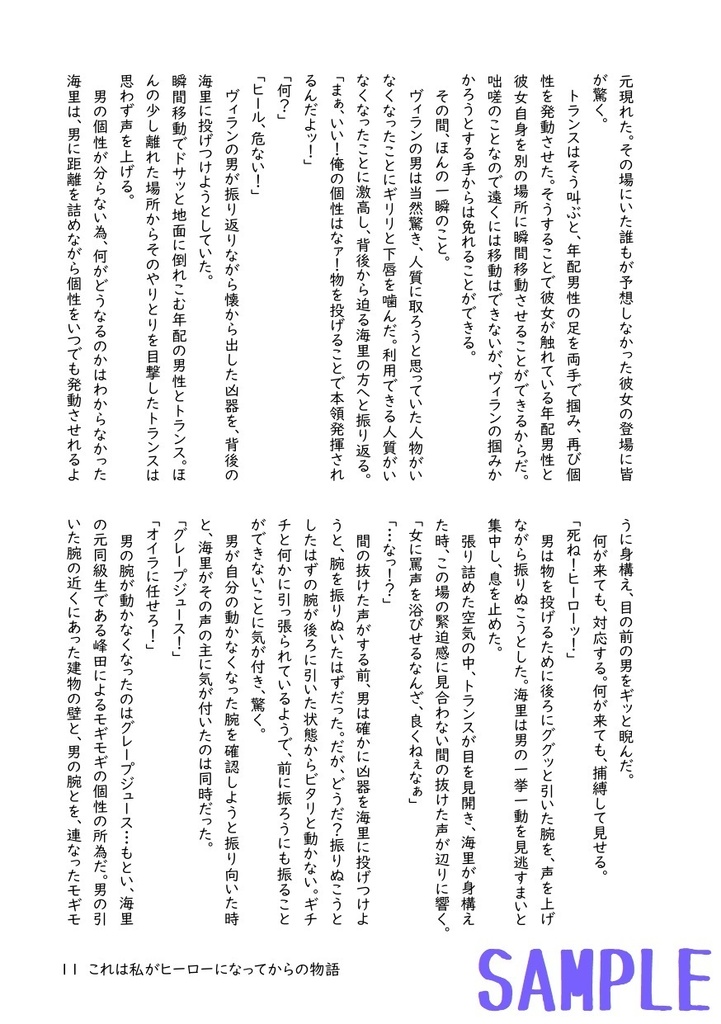 元現れた。その場にいた誰もが予想しなかった彼女の登場に皆
が驚く。
　トランスはそう叫ぶと、年配男性の足を両手で掴み、再び個
性を発動させた。そうすることで彼女が触れている年配男性と
彼女自身を別の場所に瞬間移動させることができるからだ。
咄嗟のことなので遠くには移動はできないが、ヴィランの掴みか
かろうとする手からは免れることができる。
　その間、ほんの一瞬のこと。
　ヴィランの男は当然驚き、人質に取ろうと思っていた人物がい
なくなったことにギリリと下唇を噛んだ。利用できる人質がい
なくなったことに激高し、背後から迫る海里の方へと振り返る。
「まぁ、いい！俺の個性はなァ！物を投げることで本領発揮され
るんだよッ！」
「何？」
「ヒール、危ない！」
　ヴィランの男が振り返りながら懐から出した凶器を、背後の
海里に投げつけようとしていた。
瞬間移動でドサッと地面に倒れこむ年配の男性とトランス。ほ
んの少し離れた場所からそのやりとりを目撃したトランスは
思わず声を上げる。
　男の個性が分らない為、何がどうなるのかはわからなかった
海里は、男に距離を詰めながら個性をいつでも発動させれるよ
うに身構え、目の前の男をギッと睨んだ。
　何が来ても、対応する。何が来ても、捕縛して見せる。
「死ね！ヒーローッ！」
　男は物を投げるために後ろにググッと引いた腕を、声を上げ
ながら振りぬこうとした。海里は男の一挙一動を見逃すまいと
集中し、息を止めた。
　張り詰めた空気の中、トランスが目を見開き、海里が身構え
た時、この場の緊迫感に見合わない間の抜けた声が辺りに響く。
「女に罵声を浴びせるなんざ、良くねぇなぁ」
「…なっ！？」
　間の抜けた声がする前、男は確かに凶器を海里に投げつけよ
うと、腕を振りぬいたはずだった。だが、どうだ？振りぬこうと
したはずの腕が後ろに引いた状態からピタリと動かない。ギチ
チと何かに引っ張られているようで、前に振ろうにも振ること
ができないことに気が付き、驚く。
　男が自分の動かなくなった腕を確認しようと振り向いた時
と、海里がその声の主に気が付いたのは同時だった。
「グレープジュース！」
「オイラに任せろ！」
　男の腕が動かなくなったのはグレープジュース…もとい、海里
の元同級生である峰田によるモギモギの個性の所為だ。男の引
いた腕の近くにあった建物の壁と、男の腕とを、連なったモギモ
11 これは私がヒーローになってからの物語
SAMPLE